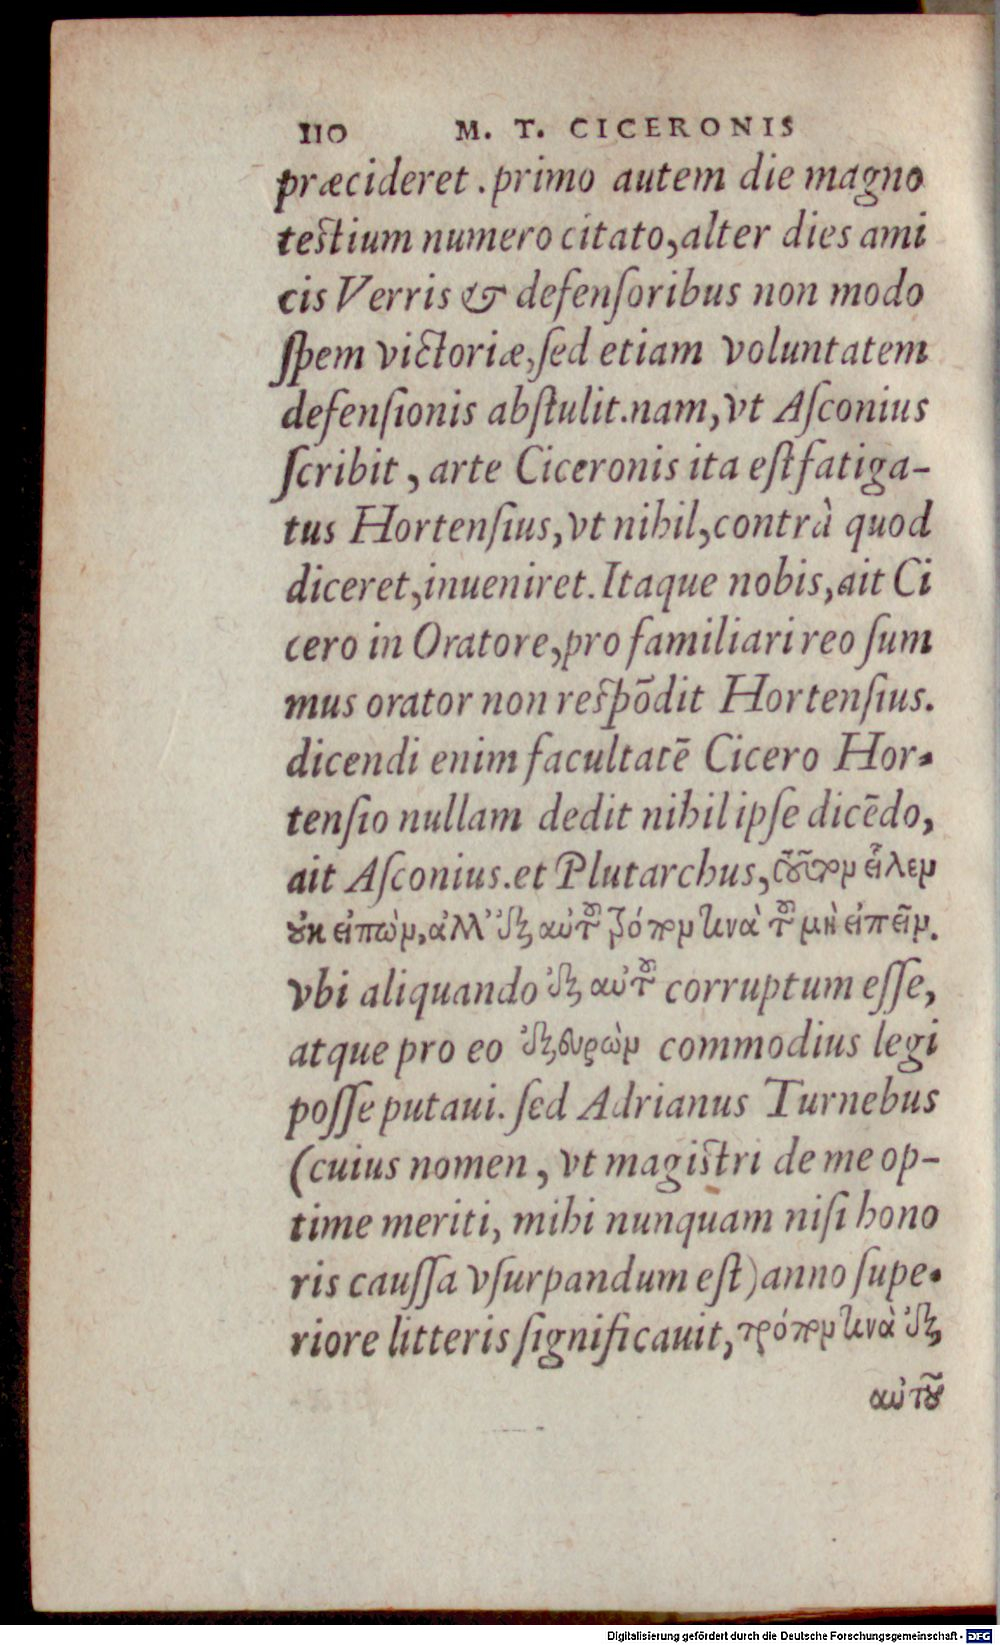 110 M. T. CICERONIS
præcideret. primo autem die magno
testium numero citato, alter dies ami
cis Verris & defensoribus non modo
spem victoriæ, sed etiam voluntatem
defensionis abstulit. nam, vt Asconius
scribit, arte Ciceronis ita est fatiga-
tus Hortensius, vt nihil, contrà quod
diceret, inueniret. Itaque nobis, ait Ci
cero in Oratore, pro familiari reo sum
mus orator non respōdit Hortensius.
dicendi enim facultatē Cicero Hor-
tensio nullam dedit nihil ipse dicēdo,
ait Asconius. et Plutarchus, εἷλεν
οὐκ εἰπὼν, ἀλλ' ἐξ αὐτοῦ τρόπον τινὰ τοῦ μὴ εἰπεῖν.
vbi aliquando ἐξ αὐτοῦ corruptum esse,
atque pro eo commodius legi
posse putaui. sed Adrianus Turnebus
(cuius nomen, vt magistri de me op-
time meriti, mihi nunquam nisi hono
ris caussa vsurpandum est) anno supe-
riore litteris significauit, τρόπον τινὰ ἐξ
αὐτοῦ
Digitalisierung gefördert durch die Deutsche Forschungsgemeinschaft - DFG